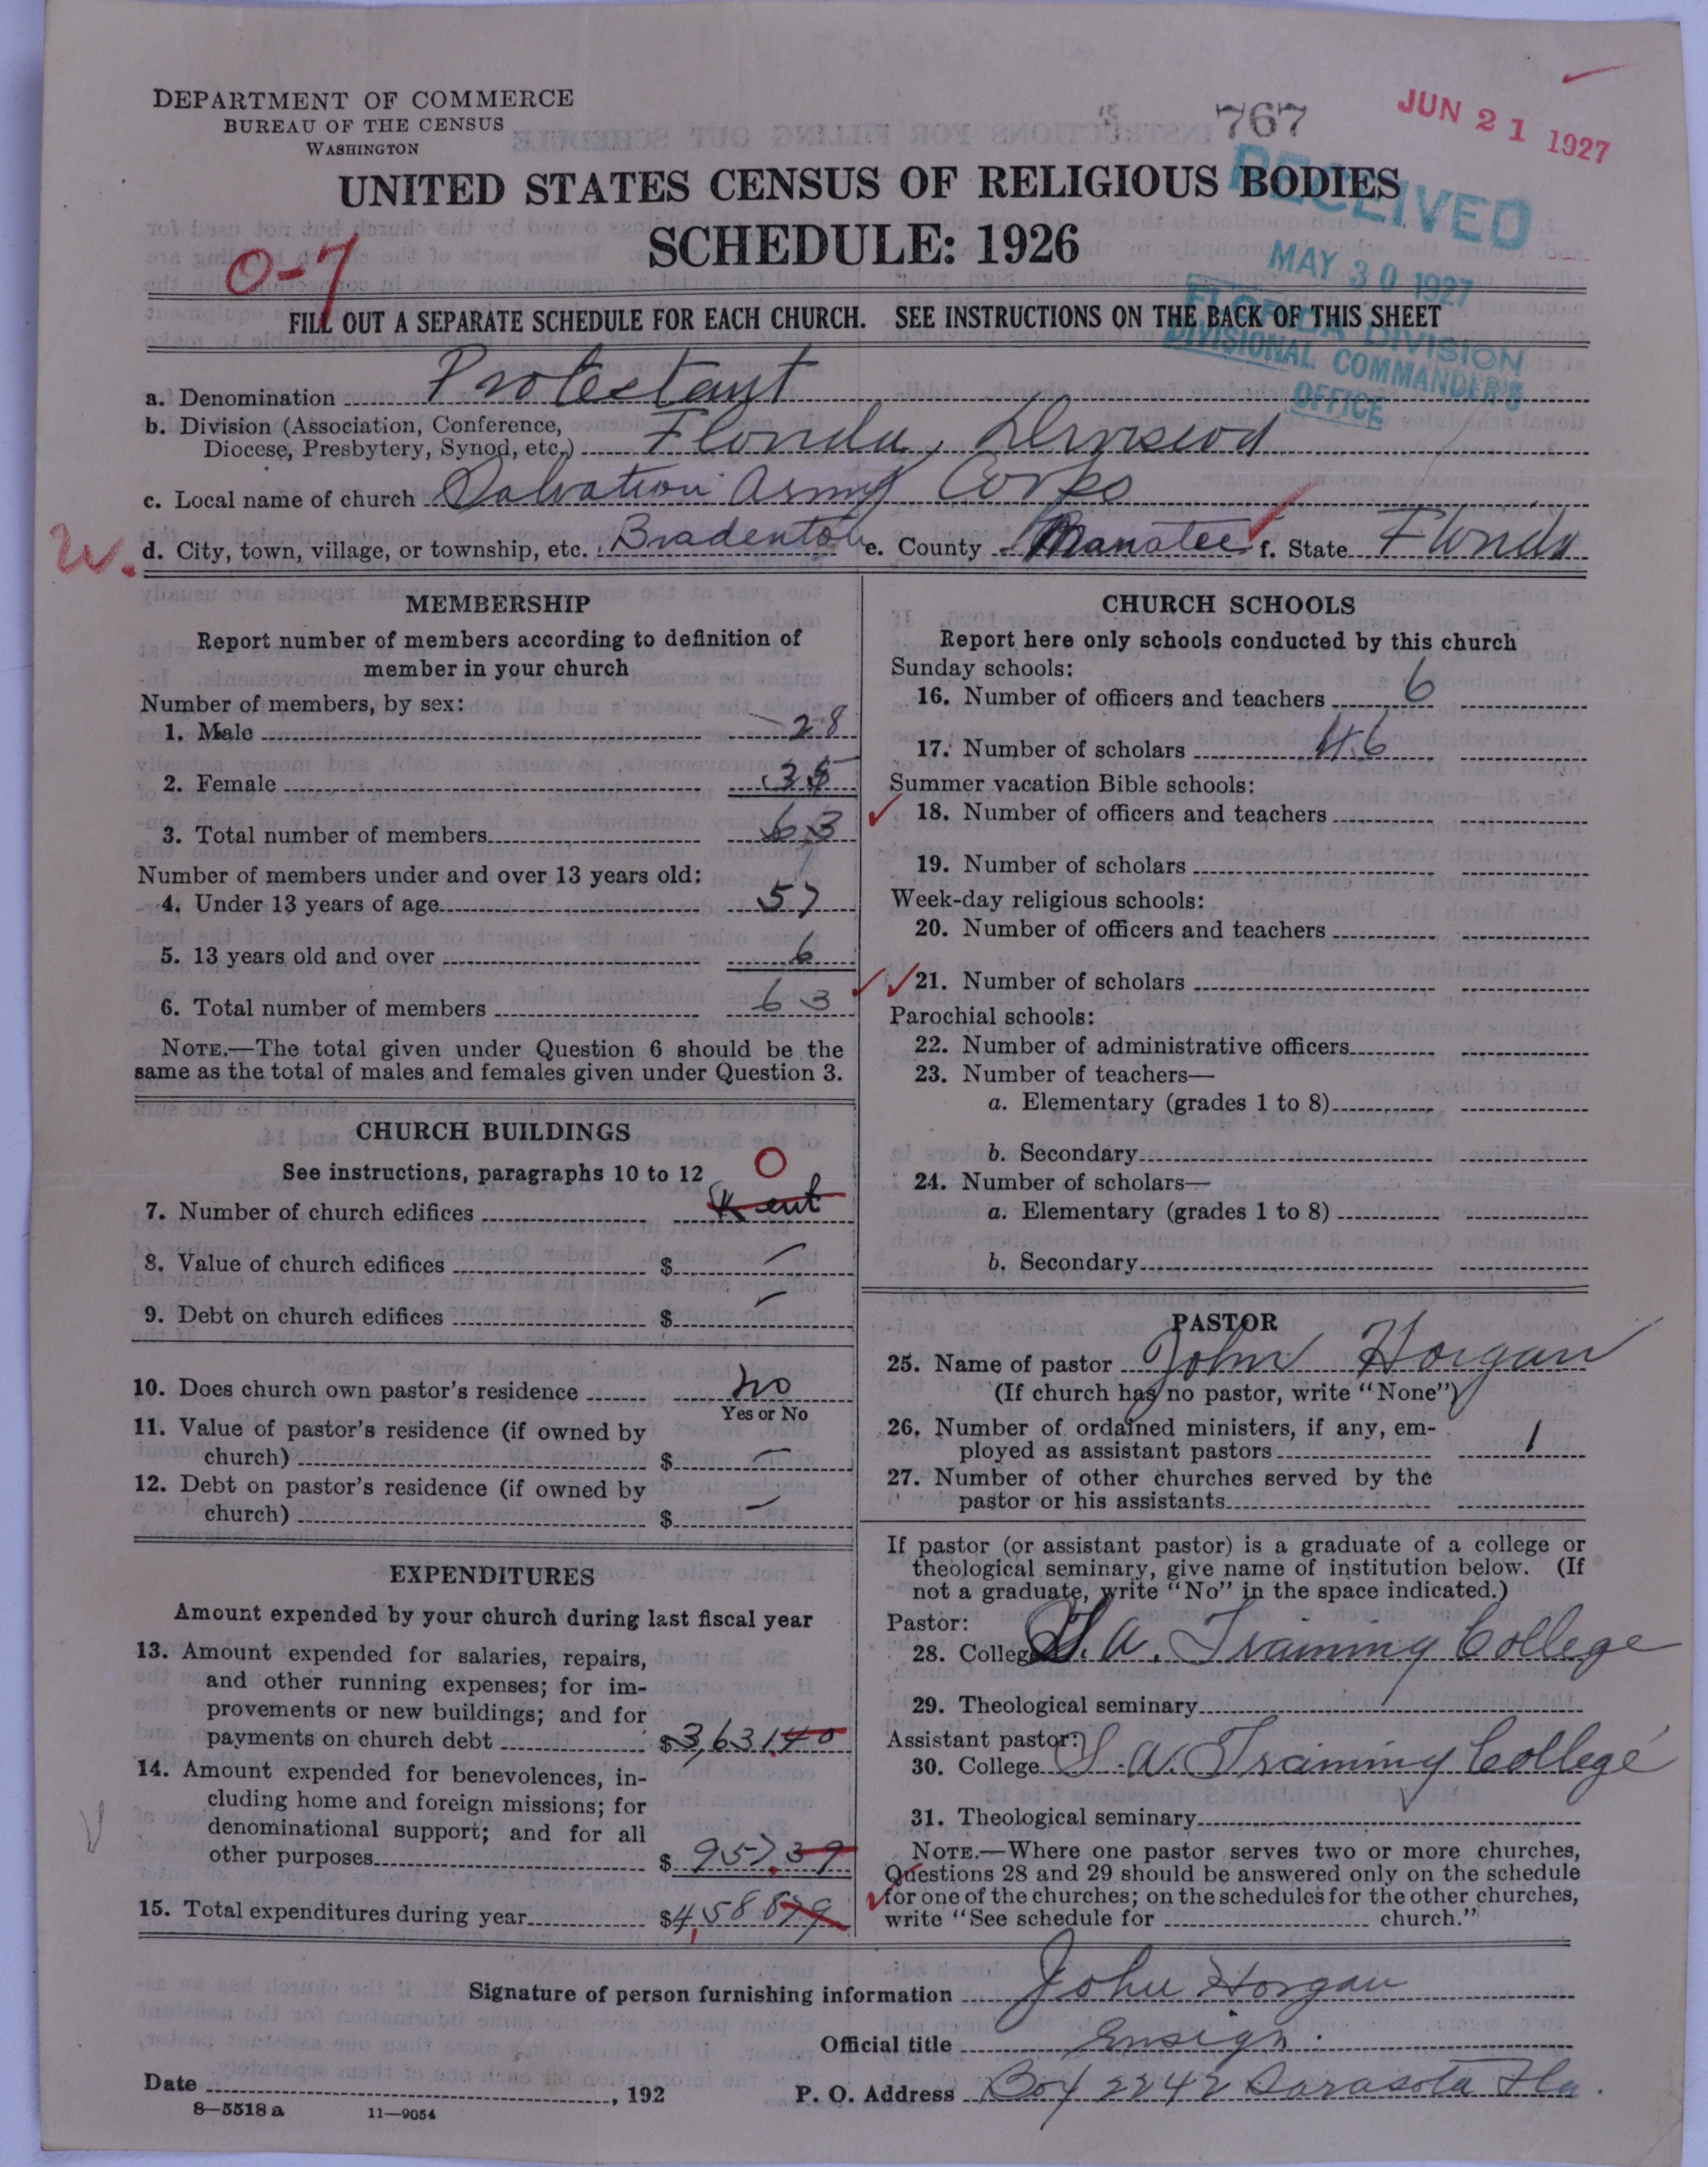 DEPARTMENT OF COMMERCE
BUREAU OF THE CENSUS
WASHINGTON
767
JUN 21 1927
UNITED STATES CENSUS OF RELIGIOUS BODIES
SCHEDULE: 1926
RECEIVED
MAY 30 1927
FLORIDA DIVISION
DIVISIONAL COMMANDER'S
OFFICE
0-7
FILL OUT A SEPARATE SCHEDULE FOR EACH CHURCH. SEE INSTRUCTIONS ON THE BACK OF THIS SHEET
a. Denomination Protestant
b. Division (Association, Conference,
Diocese, Presbytery, Synod, etc.) Florida, Division
c. Local name of church Salvation Army Corps
W. d. City, town, village, or township, etc. Bradenton e. County Manatee f. State Florida
MEMBERSHIP
Report number of members according to definition of
member in your church
Number of members, by sex:
1. Male 28
2. Female 35
3. Total number of members 63
Number of members under and over 13 years old:
4. Under 13 years of age 57
5. 13 years old and over 6
6. Total number of members 63
NOTE.—The total given under Question 6 should be the
same as the total of males and females given under Question 3.
CHURCH BUILDINGS
See instructions, paragraphs 10 to 12 0
7. Number of church edifices Rent
8. Value of church edifices $ —
9. Debt on church edifices $ —
10. Does church own pastor's residence no
Yes or No
11. Value of pastor's residence (if owned by
church) $ —
12. Debt on pastor's residence (if owned by
church) $ —
EXPENDITURES
Amount expended by your church during last fiscal year
13. Amount expended for salaries, repairs,
and other running expenses; for im-
provements or new buildings; and for
payments on church debt $3,631.40
14. Amount expended for benevolences, in-
cluding home and foreign missions; for
denominational support; and for all
other purposes $ 957.39
15. Total expenditures during year $4,58879
CHURCH SCHOOLS
Report here only schools conducted by this church
Sunday schools:
16. Number of officers and teachers 6
17. Number of scholars 46
Summer vacation Bible schools:
18. Number of officers and teachers
19. Number of scholars
Week-day religious schools:
20. Number of officers and teachers
21. Number of scholars
Parochial schools:
22. Number of administrative officers
23. Number of teachers—
a. Elementary (grades 1 to 8)
b. Secondary
24. Number of scholars—
a. Elementary (grades 1 to 8)
b. Secondary
PASTOR
25. Name of pastor John Horgan
(If church has no pastor, write "None")
26. Number of ordained ministers, if any, em-
ployed as assistant pastors 1
27. Number of other churches served by the
pastor or his assistants
If pastor (or assistant pastor) is a graduate of a college or
theological seminary, give name of institution below. (If
not a graduate, write "No" in the space indicated.)
Pastor:
28. College S. A. Training College
29. Theological seminary
Assistant pastor:
30. College S. A. Training College
31. Theological seminary
NOTE.—Where one pastor serves two or more churches,
Questions 28 and 29 should be answered only on the schedule
for one of the churches; on the schedules for the other churches,
write "See schedule for church."
Signature of person furnishing information John Horgan
Official title Ensign.
Date , 192 P. O. Address Box 2242 Sarasota Fla.
8—5518 a 11—9054